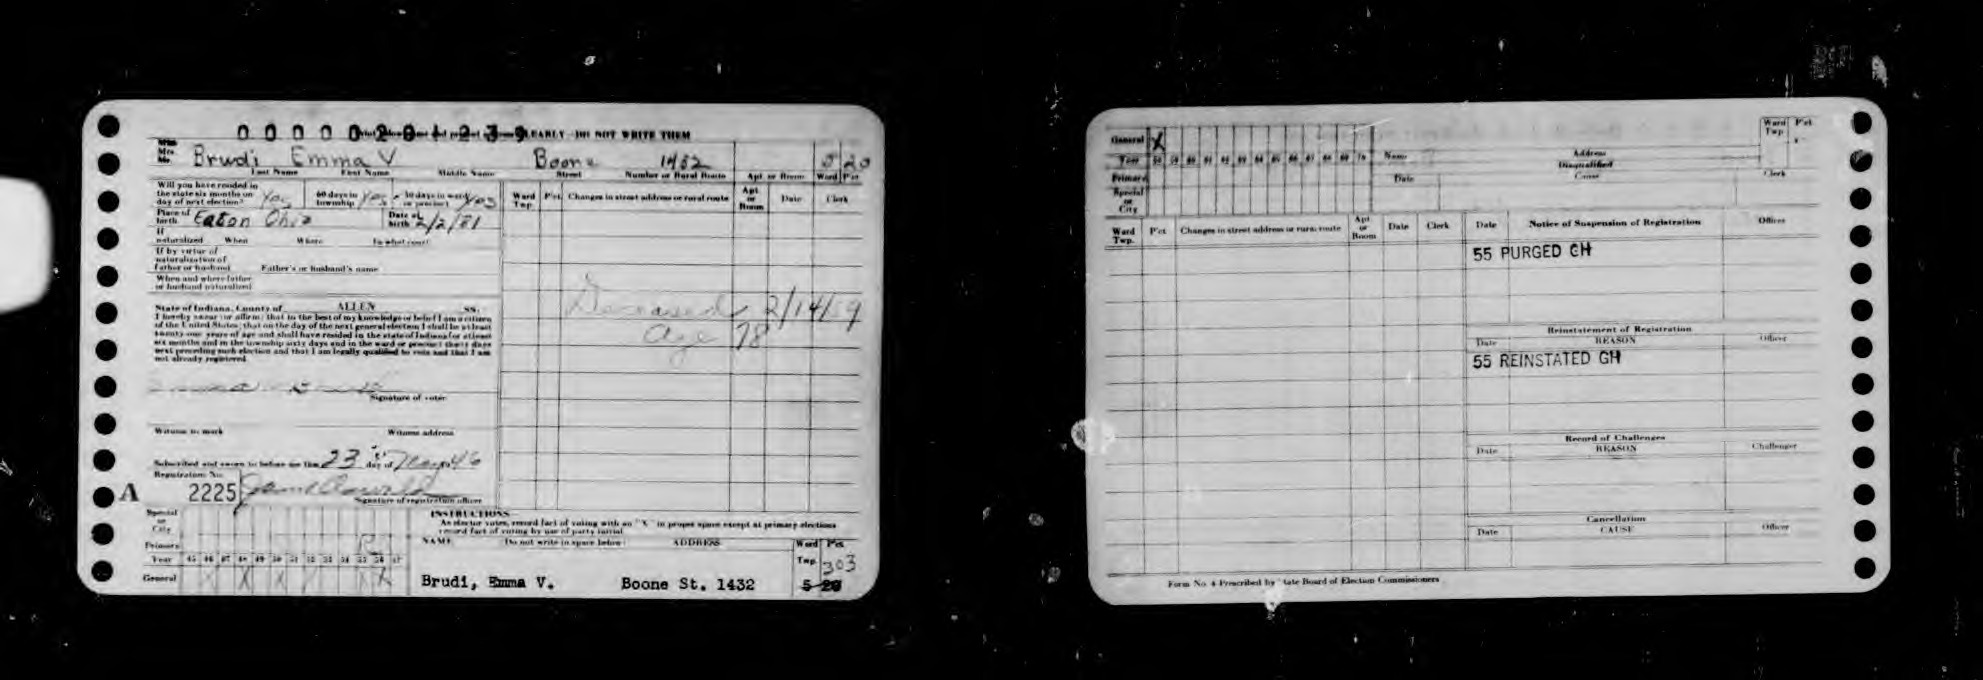 0 0 0 0 0 2 0 1 2 3 9 CLEARLY - DO NOT WRITE THEM
Mrs. Brudi Emma V Boone 1432 5 20
Mr.
Last Name First Name Middle Name Street Number or Rural Route Apt. or Room Ward Pct.
Will you have resided in
the state six months on
day of next election? Yes
60 days in
township Yes
30 days in ward
or precinct Yes
Place of
birth Eaton Ohio
Date of
birth 2/2/81
If
naturalized When Where In what court
If by virtue of
naturalization of
Father or husband Father's or husband's name
When and where father
or husband naturalized
State of Indiana, County of ALLEN SS.
I hereby swear or affirm; that to the best of my knowledge or belief I am a citizen
of the United States; that on the day of the next general election I shall be at least
twenty-one years of age and shall have resided in the state of Indiana for at least
six months and in the township sixty days and in the ward or precinct thirty days
next preceding such election and that I am legally qualified to vote and that I am
not already registered.
Signature of voter
Witness to mark Witness address
Subscribed and sworn to before me this 23 day of May 46
Registration No.
A 2225
Signature of registration officer
Ward
Twp. Pct. Changes in street address or rural route Apt.
or
Room Date Clerk
Deceased 2/14/59
Age 78
Special
or
City
Primary R
Year 45 46 47 48 49 50 51 52 53 54 55 56 57
General X X X X
INSTRUCTIONS
As elector votes, record fact of voting with an "X" in proper space except at primary elections
record fact of voting by use of party initial
NAME Do not write in space below: ADDRESS Ward Pct.
Twp. 303
Brudi, Emma V. Boone St. 1432 5-20
General X
Year 58 59 60 61 62 63 64 65 66 67 68 69 70
Primary
Special
or
City
Name Address
Disqualified
Date Cause Clerk
Ward
Twp. Pct.
Ward
Twp. Pct. Changes in street address or rural route Apt.
or
Room Date Clerk
Date Notice of Suspension of Registration Officer
55 PURGED GH
Reinstatement of Registration
Date REASON Officer
55 REINSTATED GH
Record of Challenges
Date REASON Challenger
Cancellation
Date CAUSE Officer
Form No. 4 Prescribed by State Board of Election Commissioners